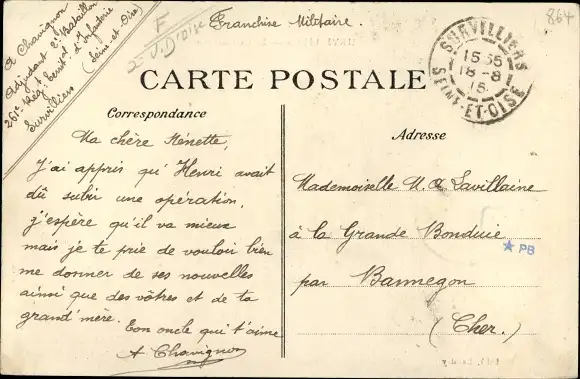 A Chavignon
Adjudant 2e Bataillon
261e Régt territal d'Infanterie
Survilliers (Seine et Oise)
F
2 - V. D'OISE
Franchise Militaire.
864
SURVILLIERS
15 35
18 - 8
15
SEINE-ET-OISE
CARTE POSTALE
Correspondance
Ma chère Nénette,
J'ai appris qu'Henri avait
dû subir une opération,
j'espère qu'il va mieux
mais je te prie de vouloir bien
me donner de ses nouvelles
ainsi que des vôtres et de ta
grand'mère.
Ton oncle qui t'aime
A Chavignon
Adresse
Mademoiselle M. Lavillaine
à la Grande Bonduie
PB
par Bannegon
(Cher.)